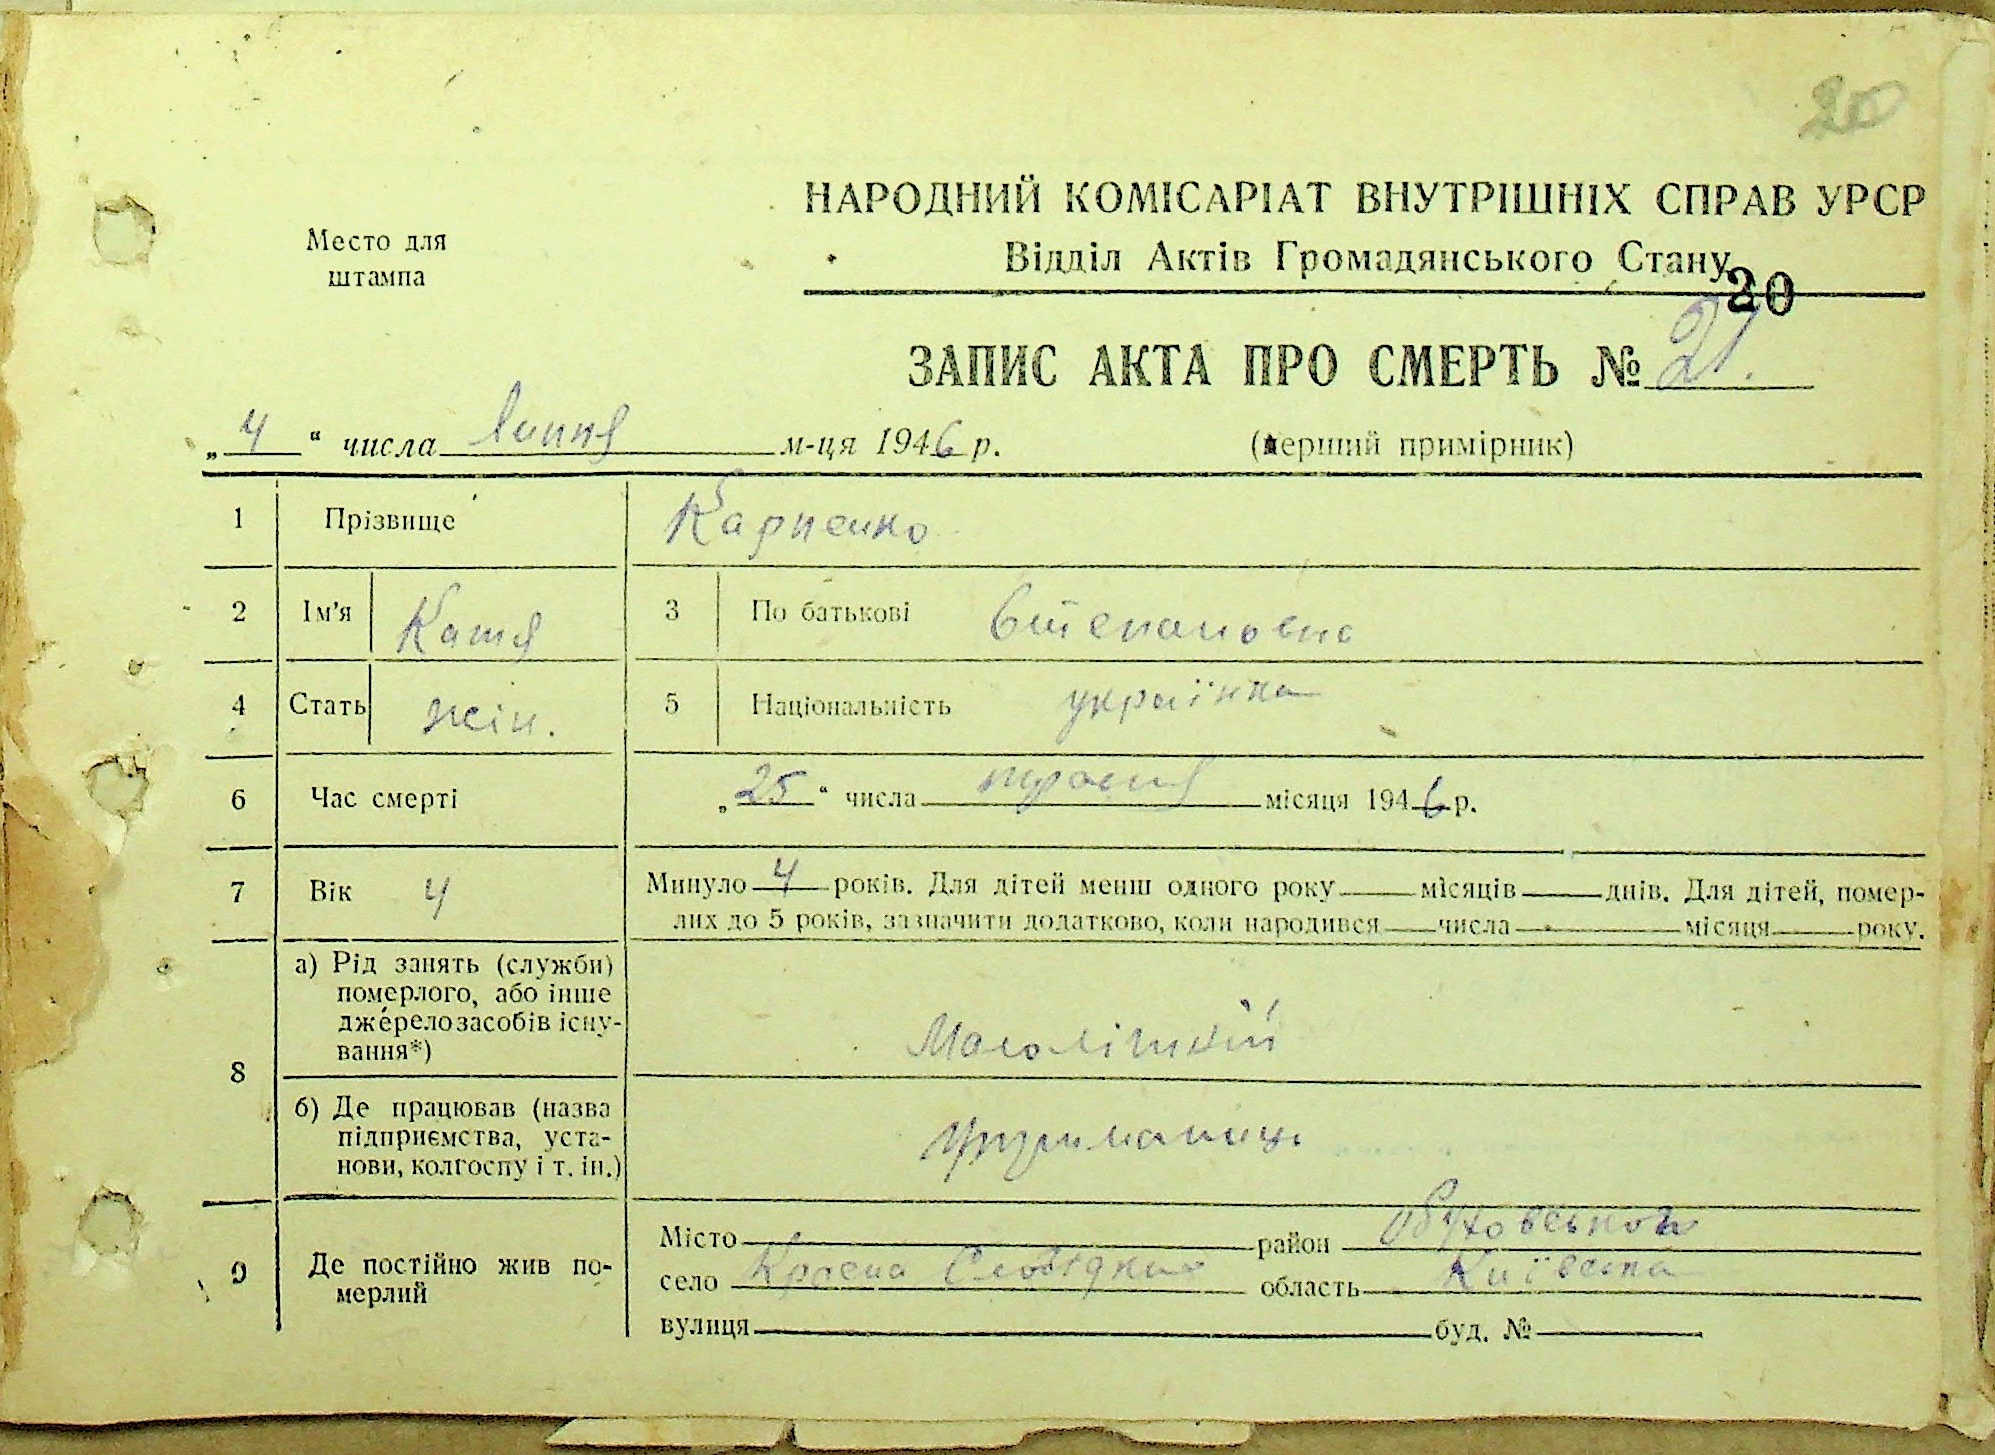 20
НАРОДНИЙ КОМІСАРІАТ ВНУТРІШНІХ СПРАВ УРСР
Место для
штампа
Відділ Актів Громадянського Стану
20
ЗАПИС АКТА ПРО СМЕРТЬ № 21.
„4“ числа липня м-ця 1946 р. (перший примірник)
1 Прізвище Карпенко
2 Ім'я Катя 3 По батькові Степановна
4 Стать жін. 5 Національність українка
6 Час смерті „25“ числа травня місяця 1946 р.
7 Вік 4 Минуло 4 років. Для дітей менш одного року місяців днів. Для дітей, помер-
лих до 5 років, зазначити додатково, коли народився числа місяця року.
8
а) Рід занять (служби)
померлого, або інше
джерело засобів існу-
вання*)
Малолітній
б) Де працював (назва
підприємства, уста-
нови, колгоспу і т. ін.)
Утриманець
9 Де постійно жив по-
мерлий
Місто район
село Красна Слобідка область Київська
вулиця буд. №